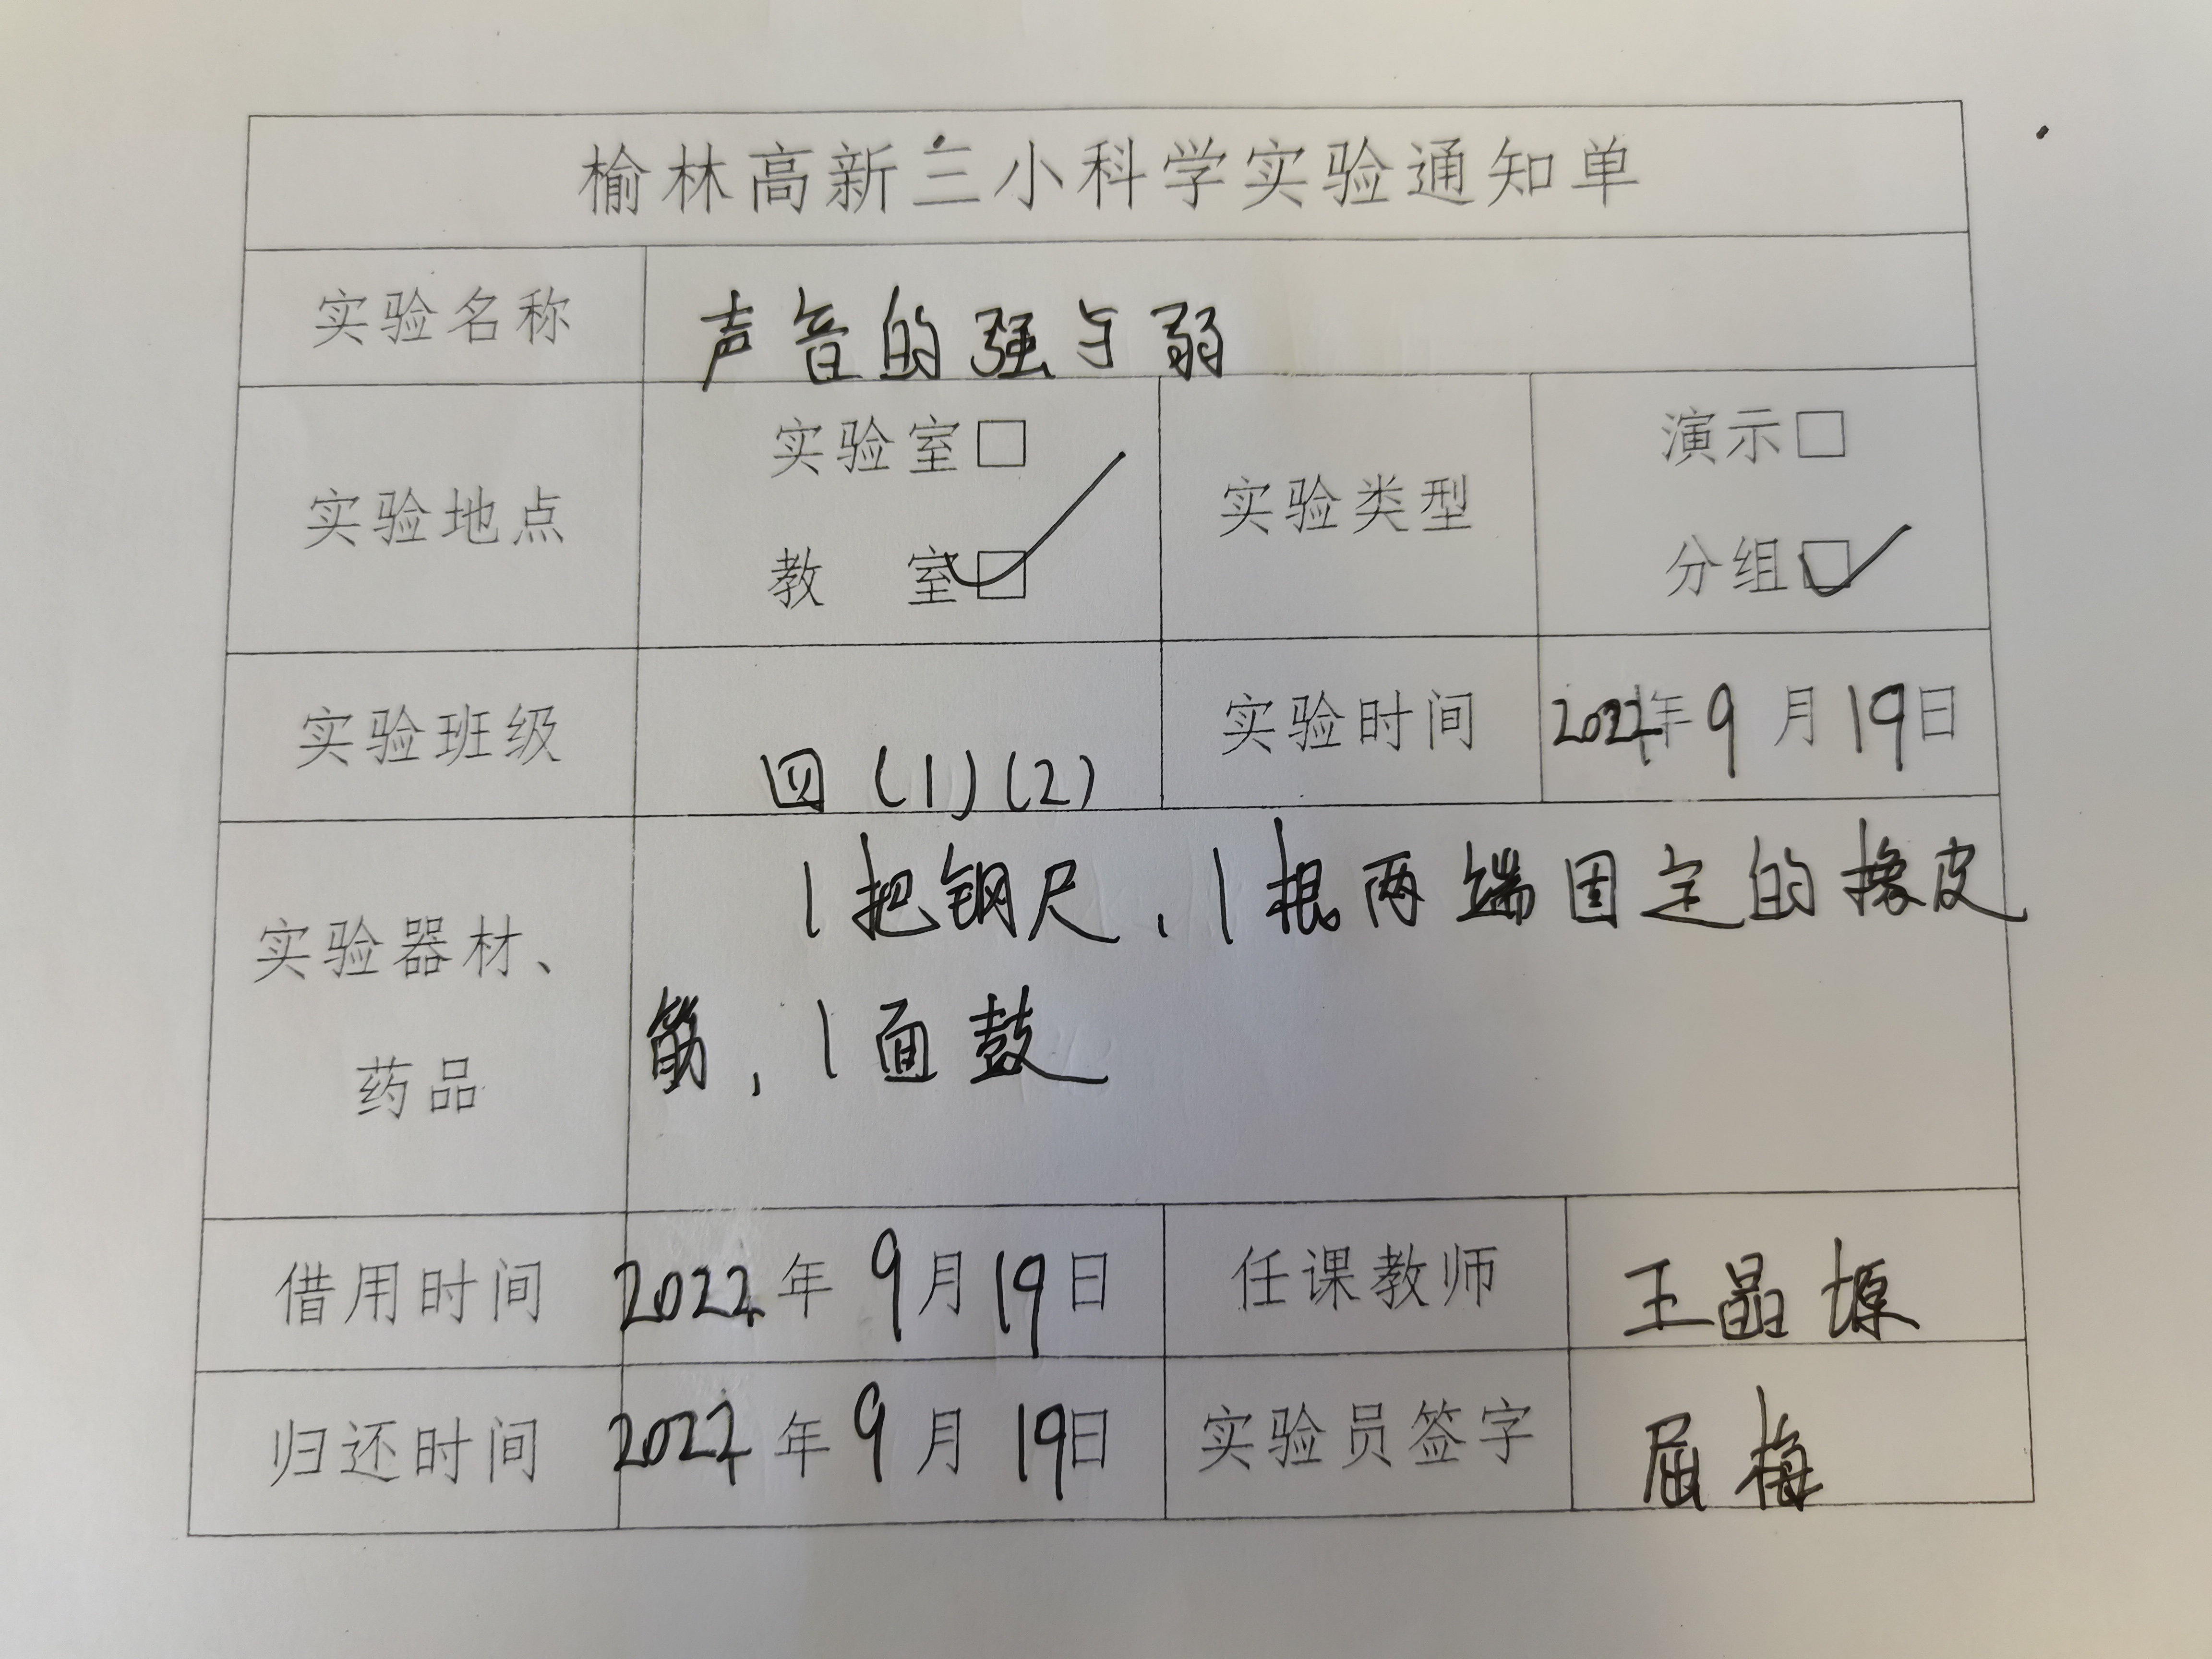 榆林高新三小科学实验通知单
实验名称 声音的强与弱
实验地点 实验室□ 教 室□✓ 实验类型 演示□ 分组□✓
实验班级 四(1)(2) 实验时间 2022年9月19日
实验器材、药品 1把钢尺，1根两端固定的橡皮
筋，1面鼓
借用时间 2022年9月19日 任课教师 王晶塬
归还时间 2022年9月19日 实验员签字 屈梅